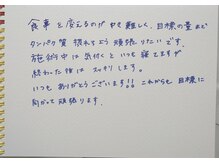 食事を変えるのが中々難しく、目標の量まで
タンパク質摂れるよう頑張りたいです。
施術中は気付くといつも寝てますが
終わった後はスッキリします。
いつもありがとうございます!!これからも目標に
向かって頑張ります。